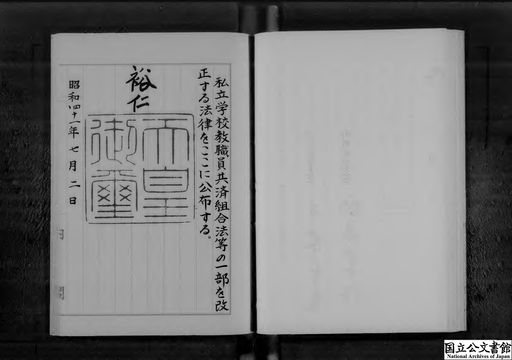 私立学校教職員共済組合法等の一部を改
正する法律をここに公布する。
裕仁
天皇
御璽
昭和四十一年七月二日
国立公文書館
National Archives of Japan